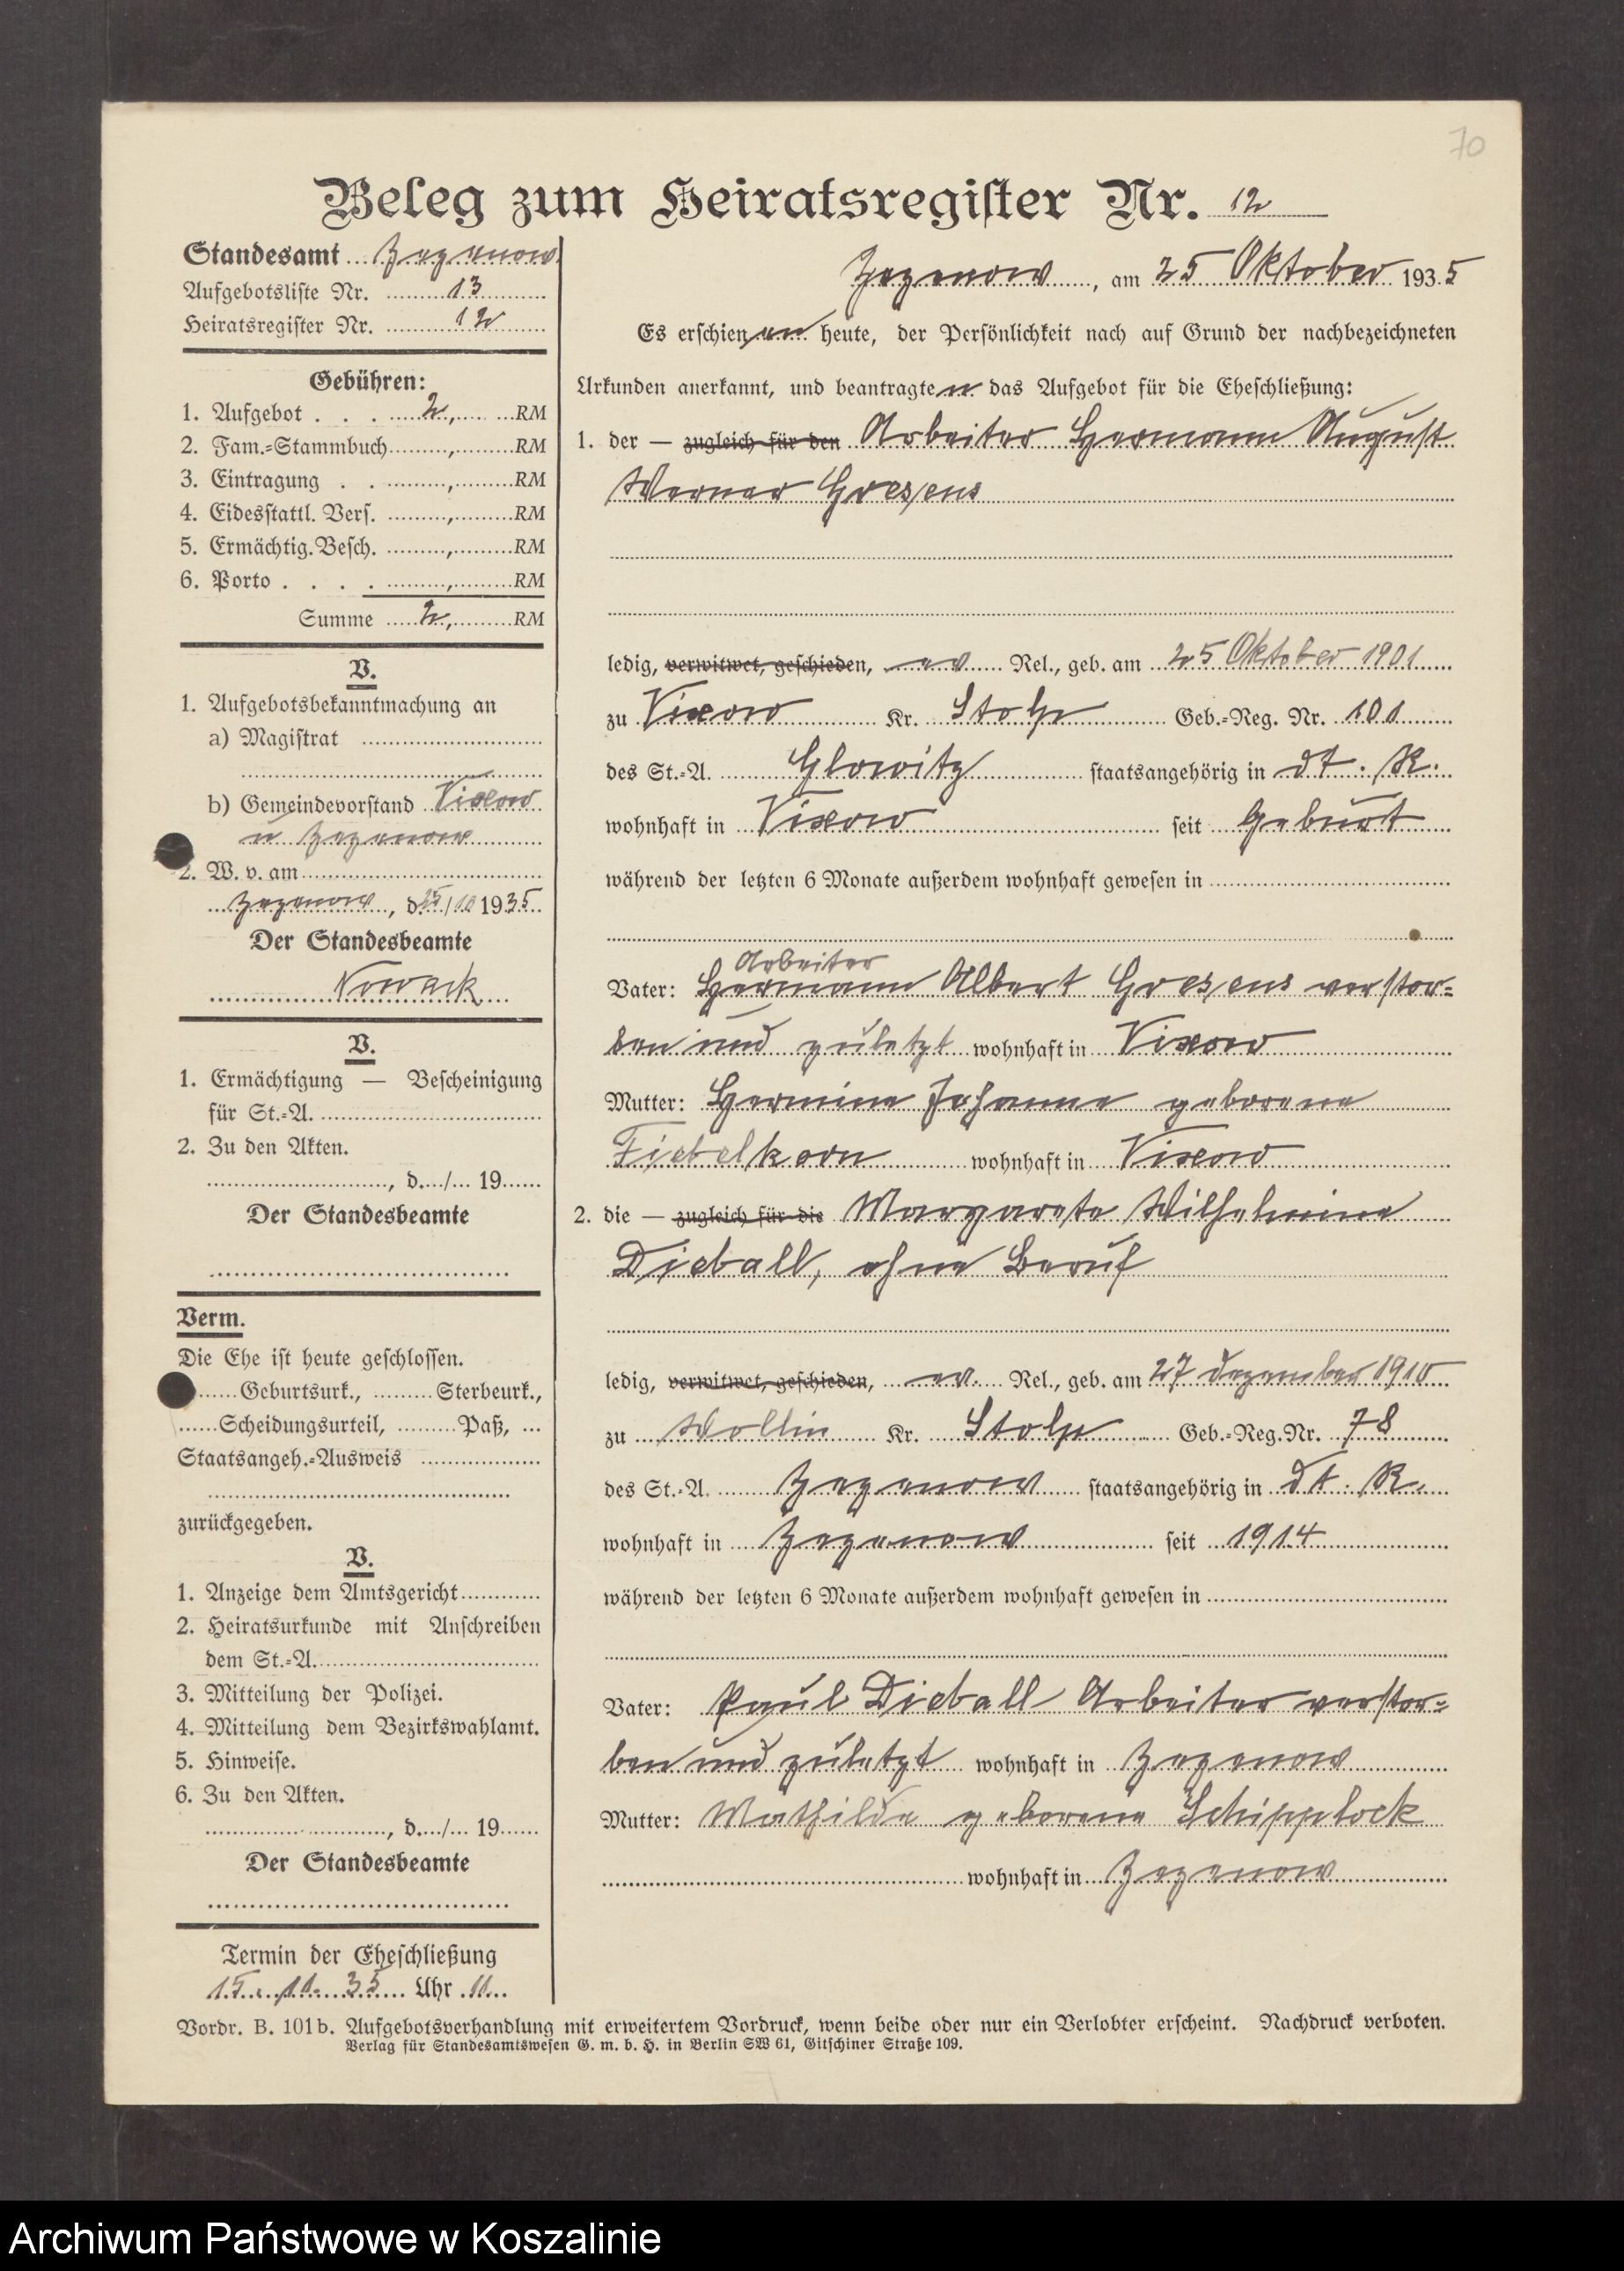 70
Beleg zum Heiratsregister Nr. 12
Standesamt Zezenow
Aufgebotsliste Nr. 13
Heiratsregister Nr. 12
Gebühren:
1. Aufgebot . . . 2, RM
2. Fam.-Stammbuch , RM
3. Eintragung . . , RM
4. Eidesstattl. Vers. , RM
5. Ermächtig. Besch. , RM
6. Porto . . . . , RM
Summe 2, RM
V.
1. Aufgebotsbekanntmachung an
a) Magistrat
b) Gemeindevorstand Vixow
u Zezenow
2. W. v. am
Zezenow, d. 25/10 1935
Der Standesbeamte
Nowack
V.
1. Ermächtigung — Bescheinigung
für St.-A.
2. Zu den Akten.
, d. / 19
Der Standesbeamte
Verm.
Die Ehe ist heute geschlossen.
Geburtsurk., Sterbeurk.,
Scheidungsurteil, Paß,
Staatsangeh.-Ausweis
zurückgegeben.
V.
1. Anzeige dem Amtsgericht
2. Heiratsurkunde mit Anschreiben
dem St.-A.
3. Mitteilung der Polizei.
4. Mitteilung dem Bezirkswahlamt.
5. Hinweise.
6. Zu den Akten.
, d. / 19
Der Standesbeamte
Termin der Eheschließung
15. 11. 35 Uhr 11
Zezenow, am 25 Oktober 1935
Es erschienen heute, der Persönlichkeit nach auf Grund der nachbezeichneten
Urkunden anerkannt, und beantragten das Aufgebot für die Eheschließung:
1. der — zugleich für den Arbeiter Hermann August
Werner Gresens
ledig, verwitwet, geschieden, ev. Rel., geb. am 25 Oktober 1901
zu Vixow Kr. Stolp Geb.-Reg. Nr. 101
des St.-A. Glowitz staatsangehörig in dt. R.
wohnhaft in Vixow seit Geburt
während der letzten 6 Monate außerdem wohnhaft gewesen in
Arbeiter
Vater: Hermann Albert Gresens verstor-
ben und zuletzt wohnhaft in Vixow
Mutter: Hermine Johanne geborene
Fiebelkorn wohnhaft in Vixow
2. die — zugleich für die Margarete Wilhelmine
Dieball, ohne Beruf
ledig, verwitwet, geschieden, ev. Rel., geb. am 27 Dezember 1910
zu Wollin Kr. Stolp Geb.-Reg. Nr. 78
des St.-A. Zezenow staatsangehörig in dt. R.
wohnhaft in Zezenow seit 1914
während der letzten 6 Monate außerdem wohnhaft gewesen in
Vater: Paul Dieball Arbeiter verstor-
ben und zuletzt wohnhaft in Zezenow
Mutter: Mathilde geborene Schipplock
wohnhaft in Zezenow
Vordr. B. 101b. Aufgebotsverhandlung mit erweitertem Vordruck, wenn beide oder nur ein Verlobter erscheint. Nachdruck verboten.
Verlag für Standesamtswesen G. m. b. H. in Berlin SW 61, Gitschiner Straße 109.
Archiwum Państwowe w Koszalinie